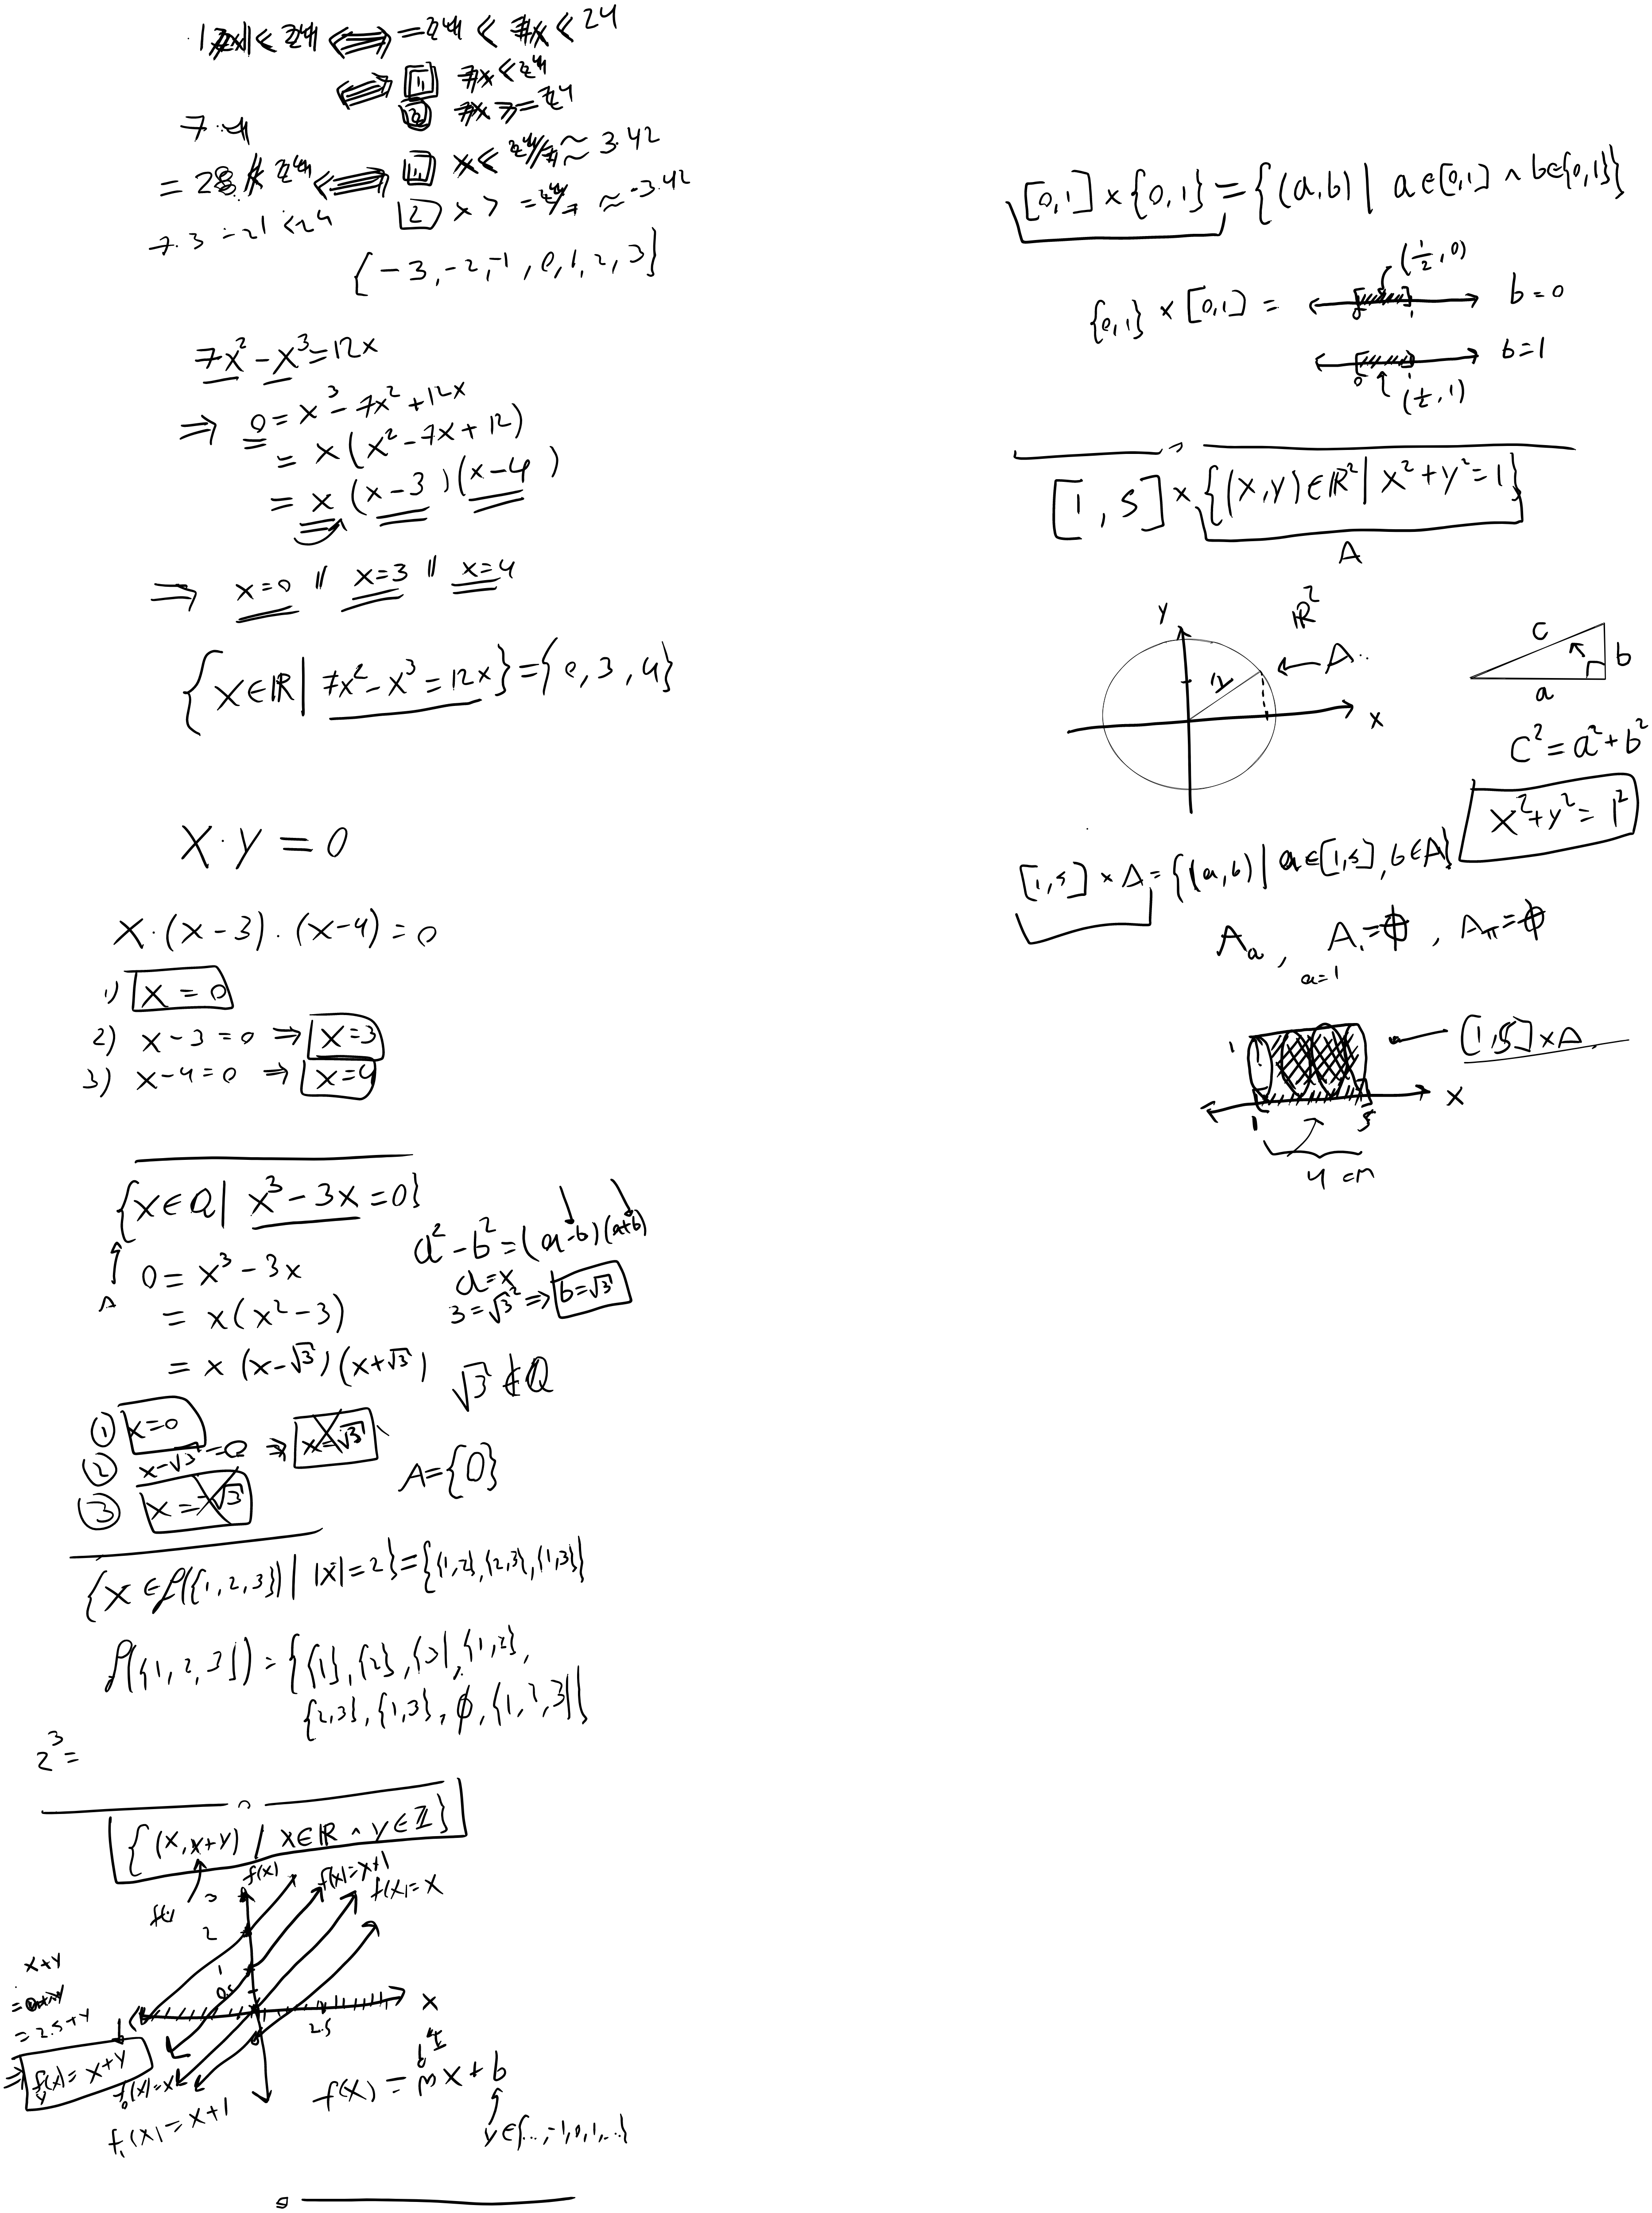 |7x| < 24 ⟺ -24 < 7x < 24
⟺ 1 7x < 24
2 7x > -24
7·4
= 28 24 ⟺ 1 x < 24/7 ≈ 3.42
7·3 = 21 < 24
2 x > -24/7 ≈ -3.42
{-3,-2,-1,0,1,2,3}
7x² - x³ = 12x
⇒ 0 = x³ - 7x² + 12x
= x(x² - 7x + 12)
= x(x-3)(x-4)
⇒ x=0 // x=3 // x=4
{x∈ℝ | 7x² - x³ = 12x} = {0,3,4}
X·Y = 0
X·(x-3)·(x-4) = 0
1) x = 0
2) x-3 = 0 ⇒ x=3
3) x-4 = 0 ⇒ x=4
{x∈Q | x³ - 3x = 0}
A
0 = x³ - 3x
= x(x² - 3)
= x(x-√3)(x+√3)
a² - b² = (a-b)(a+b)
a=x
3 = √3² ⇒ b=√3
√3 ∉ Q
① x=0
② x-√3 = 0 ⇒ x=√3
③ x=-√3
A={0}
{X∈𝒫({1,2,3}) | |X|=2} = {{1,2},{2,3},{1,3}}
𝒫({1,2,3}) = {{1},{2},{3},{1,2},
{2,3},{1,3},∅,{1,2,3}}
2³ =
{(x,x+y) | x∈ℝ ∧ y∈ℤ}
f(x)
f(x)=x+1
f(x)=x
3
2
1
0.5
x+y
= 2.5+y
⇒ f_y(x) = x+y
2.5
x
f₀(x)=x
f₁(x)=x+1
f(x) = mx+b
y∈{...,-1,0,1,...}
[0,1] × {0,1} = {(a,b) | a∈[0,1] ∧ b∈{0,1}}
(1/2,0)
{0,1} × [0,1] =
0 1
b=0
0 1
b=1
(1/2,1)
[1,5] × {(x,y)∈ℝ² | x²+y²=1}
A
y
ℝ²
A
1
x
c
b
a
c² = a²+b²
x²+y² = 1²
[1,5] × A = {(a,b) | a∈[1,5], b∈A}
A_a, A₁=ϕ, A_π=ϕ
a=1
1
[1,5]×A
x
1 5
4 cm